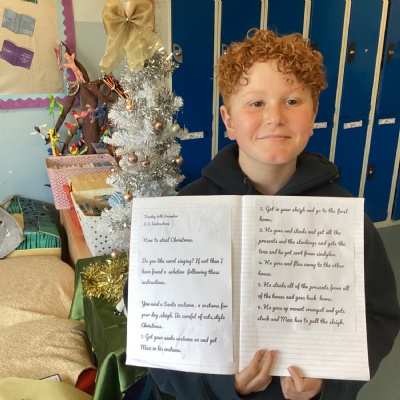 Tuesday 16th December
L.O. Instructions
How to steal Christmas.
Do you like carol singing? If not then I
have found a solution following these
instructions.
You need a Santa costume, a costume for
your dog, sleigh. Be careful of cats, style
Christmas.
1. Get your santa costume on and get
Max in his costume.
2. Get in your sleigh and go to the first
home.
3. He goes and steals and get all the
presents and the stockings and gets the
tree and he got sort from sindylou.
4. He goes and flies away to the other
house.
5. He steals all of the presents from all
of the house and goes back home.
6. He goes up mount crumpet and gets
stuck and Max has to pull the sleigh.